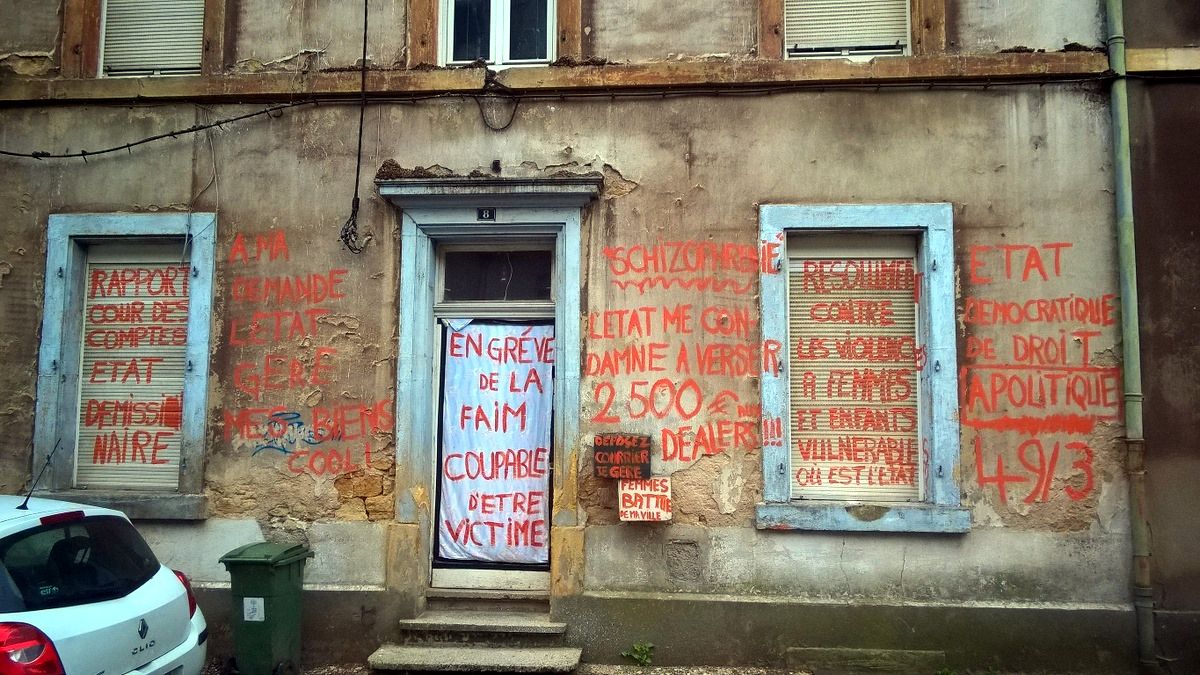 RAPPORT
COUR DES
COMPTES
ETAT
DEMISSI
NAIRE
A MA
DEMANDE
L'ETAT
GERE
MES BIENS
COOL!
8
EN GRÉVE
DE LA
FAIM
COUPABLE
D'ETRE
VICTIME
"SCHIZOPHRENIE"
L'ETAT ME CON-
DAMNE A VERSER
2500 €
DEALERS !!!
DEPOSEZ
COURRIER
JE GERE
FEMMES
BATTUE
DE MA VILLE
RESOLUMENT
CONTRE
LES VIOLENCES
A FEMMES
ET ENFANTS
VULNERABLES
OU EST L'ETAT
ETAT
DEMOCRATIQUE
DE DROIT
APOLITIQUE
49/3
CLIO